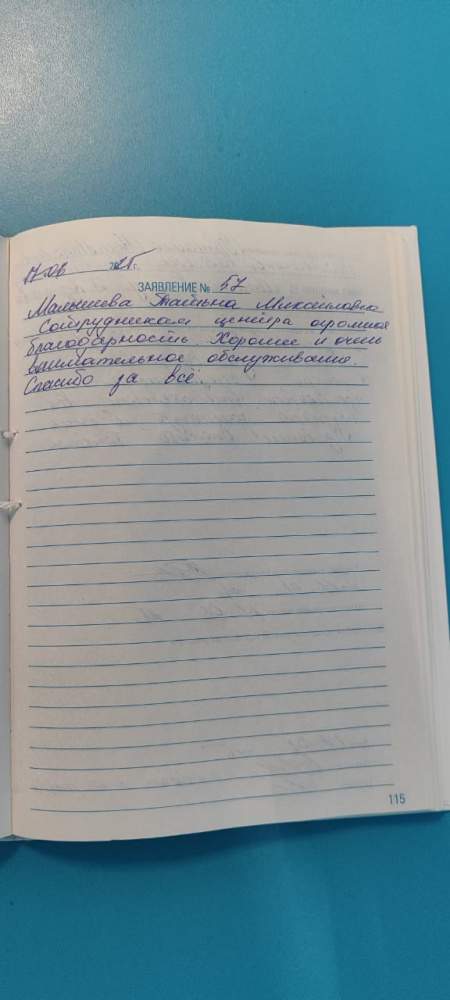 17.08 2025г.
ЗАЯВЛЕНИЕ № 57
Малышева Татьяна Михайловна
Сотрудникам центра огромная
благодарность. Хорошее и очень
внимательное обслуживание.
Спасибо за всё.
115